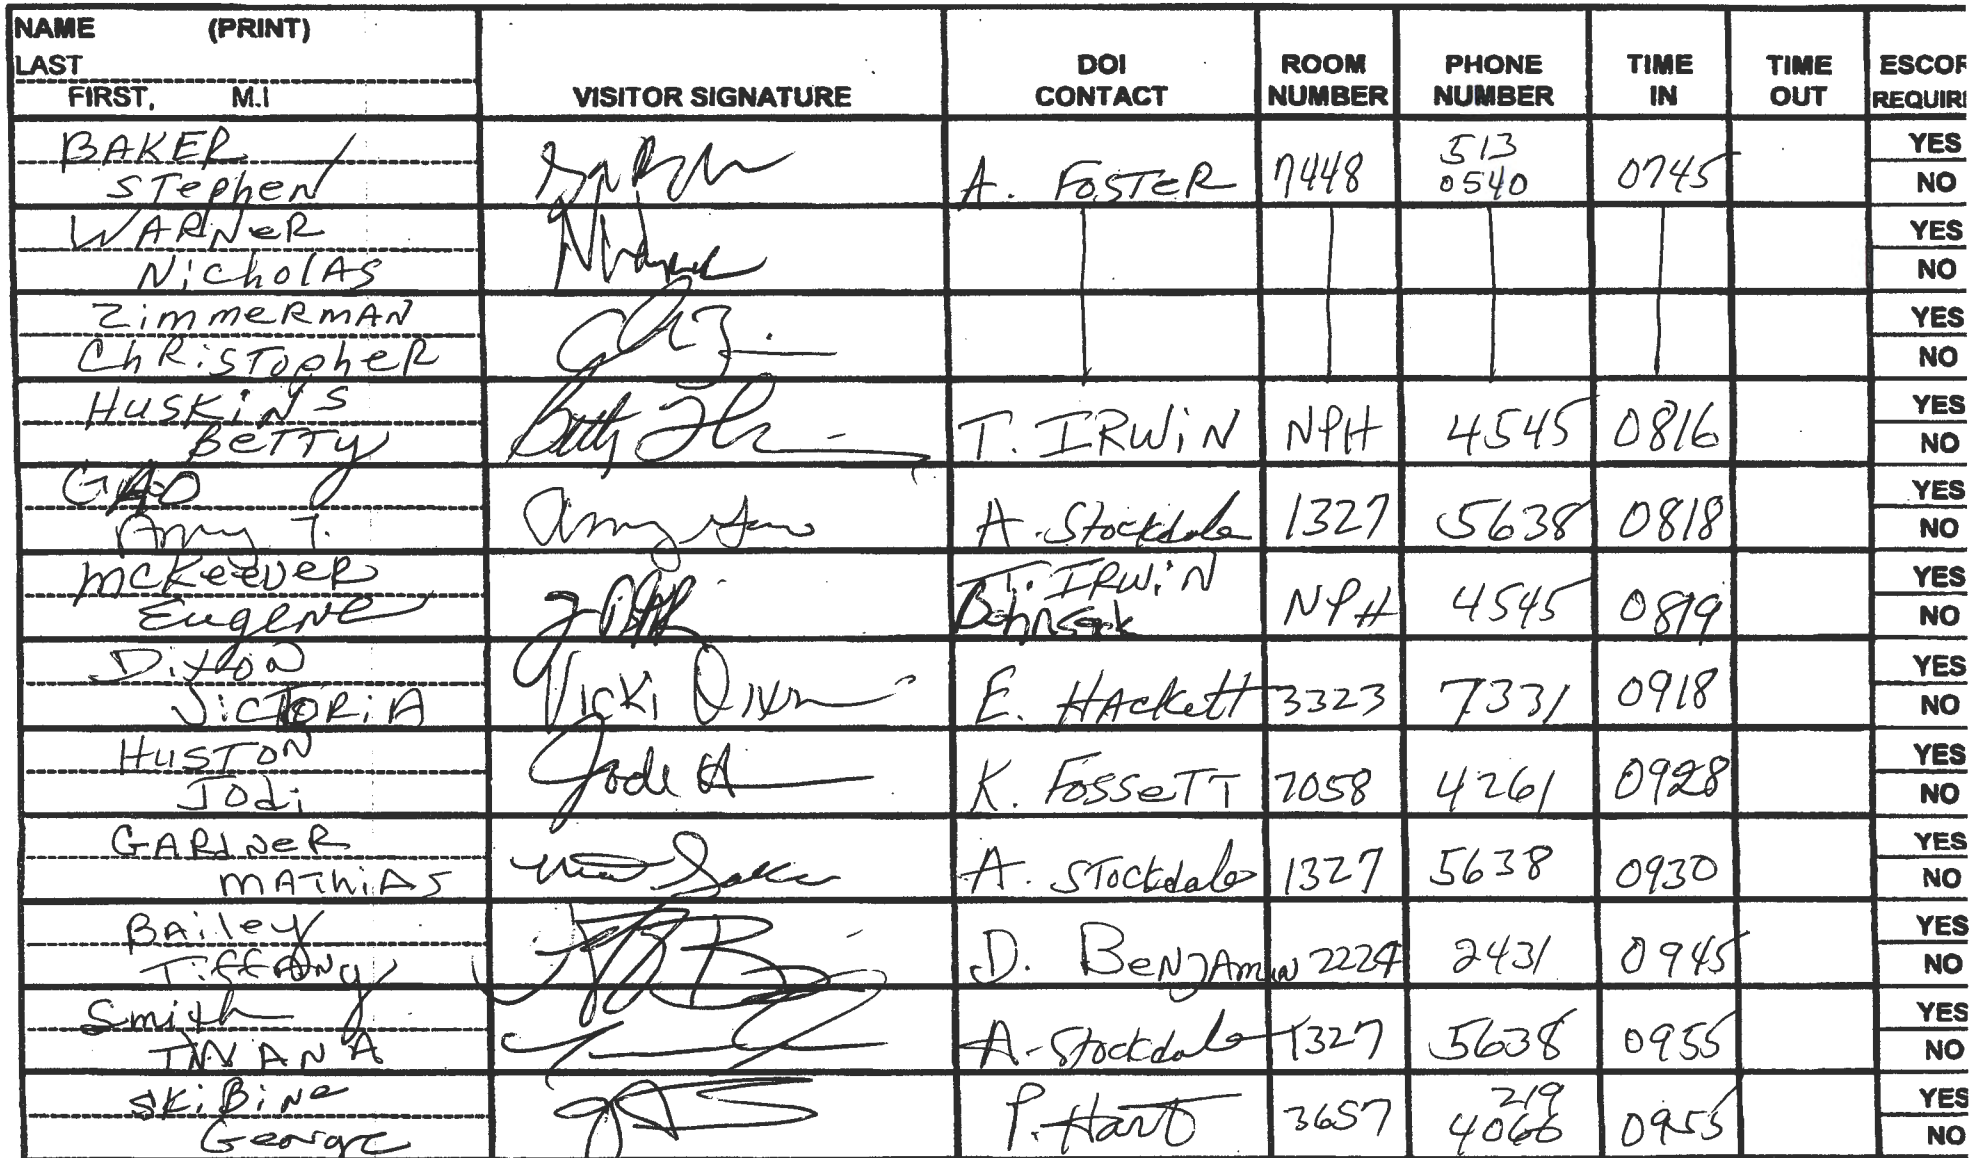 NAME (PRINT)
LAST
FIRST, M.I
VISITOR SIGNATURE
DOI CONTACT
ROOM NUMBER
PHONE NUMBER
TIME IN
TIME OUT
ESCOR REQUIR
BAKER
Stephen
A. FOSTER 7448 513 0540 0745 YES NO
WARNER
Nicholas
YES NO
Zimmerman
Christopher
YES NO
HUSKINS
BETTY
Betty
T. IRWIN NPH 4545 0816 YES NO
GAO
Amy T.
Amy Gao
A. Stockdale 1327 5638 0818 YES NO
McKeever
Eugene
T. IRWIN
NPH 4545 0819 YES NO
Dixon
Victoria
Vicki Dixon
E. Hackett 3323 7331 0918 YES NO
HUSTON
Jodi
Jodi H
K. Fossett 7058 4261 0928 YES NO
GARDNER
MATHIAS
A. Stockdale 1327 5638 0930 YES NO
Bailey
Tiffany
D. Benjamin 2224 2431 0945 YES NO
Smith
TWANA
A. Stockdale 1327 5638 0955 YES NO
SkiBine
George
P. Hart 3657 219 4066 0955 YES NO